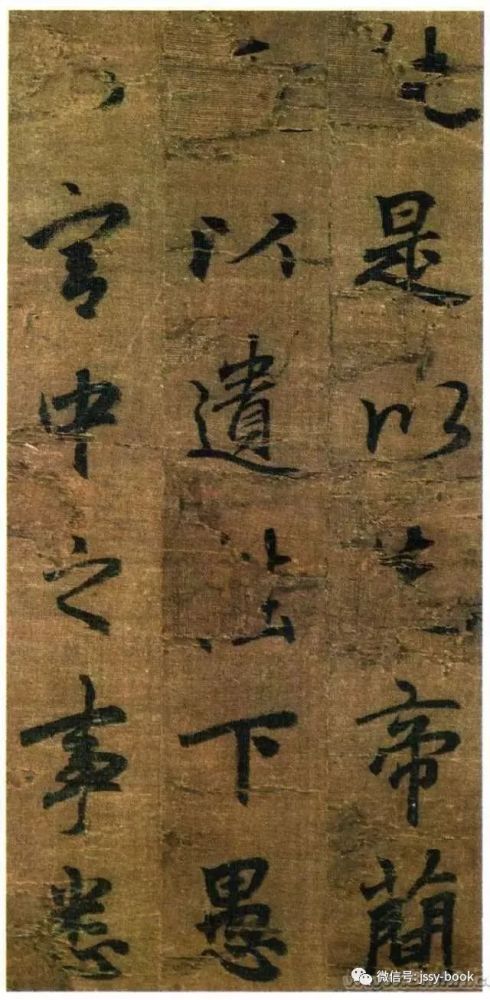 是以先帝簡
以遺陛下愚
宮中之事悉
微信号: jssy-book